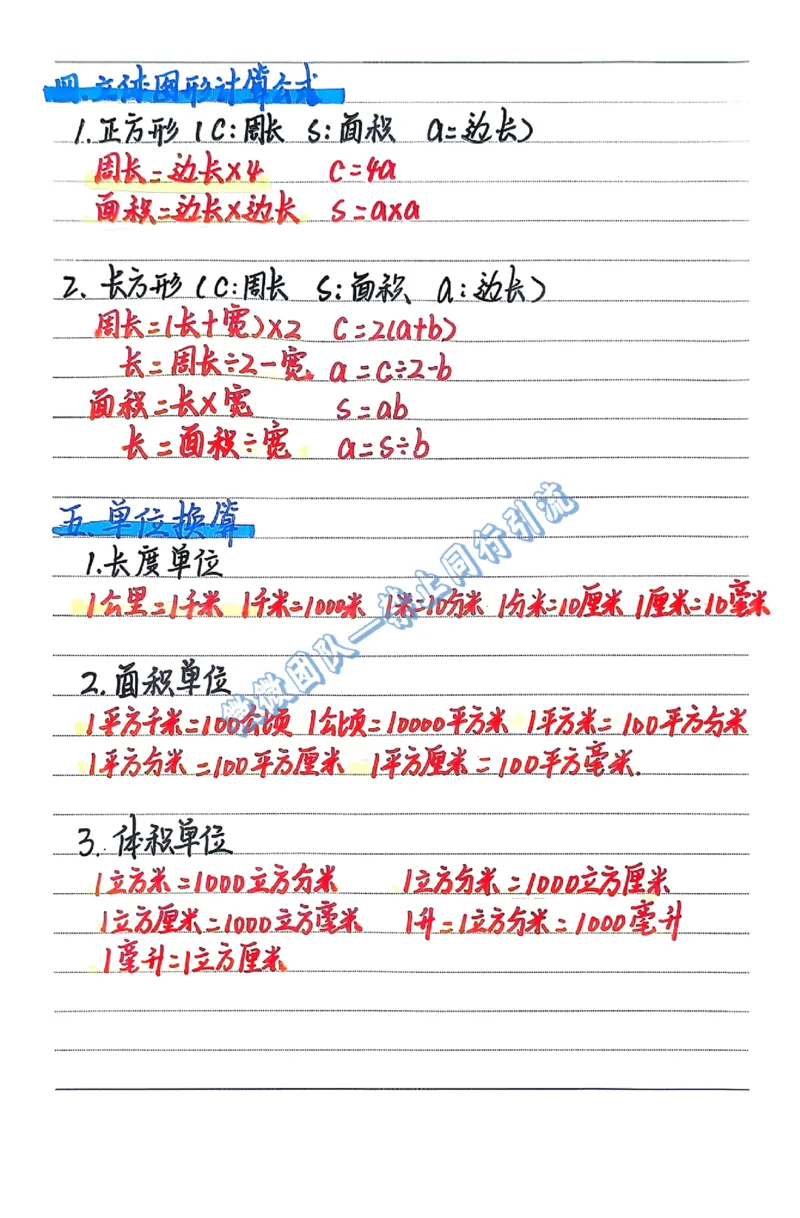 四.立体图形计算公式
1.正方形(C:周长 S:面积 a=边长)
周长=边长×4 C=4a
面积=边长×边长 S=a×a
2.长方形(C:周长 S:面积 a:边长)
周长=(长+宽)×2 C=2(a+b)
长=周长÷2-宽 a=c÷2-b
面积=长×宽 S=ab
长=面积÷宽 a=s÷b
五.单位换算
1.长度单位
1公里=1千米 1千米=1000米 1米=10分米 1分米=10厘米 1厘米=10毫米
2.面积单位
1平方千米=100公顷 1公顷=10000平方米 1平方米=100平方分米
1平方分米=100平方厘米 1平方厘米=100平方毫米.
3.体积单位
1立方米=1000立方分米 1立方分米=1000立方厘米
1立方厘米=1000立方毫米 1升=1立方分米=1000毫升
1毫升=1立方厘米
微团队一线上同行引流